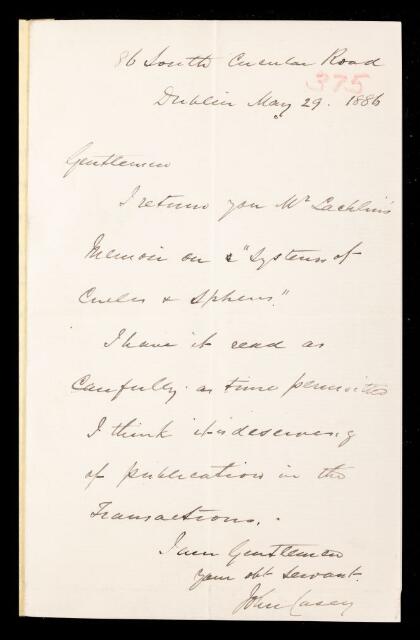 86 South Circular Road
375
Dublin May 29. 1886
Gentlemen
I return you Mr Lachlin's
Memoir on "Systems of
Circles & Spheres."
I have it read as
Carefully as time permitted
I think it is deserving
of publication in the
Transactions.
I am Gentlemen
your obt servant.
John Casey